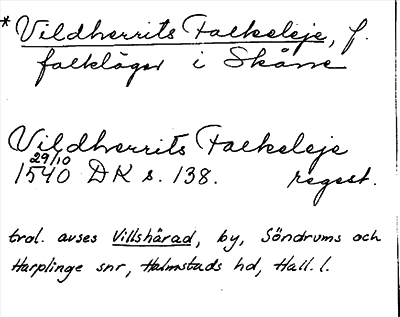 *Vildherrits Falkeleje, f.
falkläger i Skåne
Vildherrits Falkeleje
29/10
1540 DK s. 138. regest.
trol. avses Villshärad, by, Söndrums och
Harplinge snr, Halmstads hd, Hall. l.